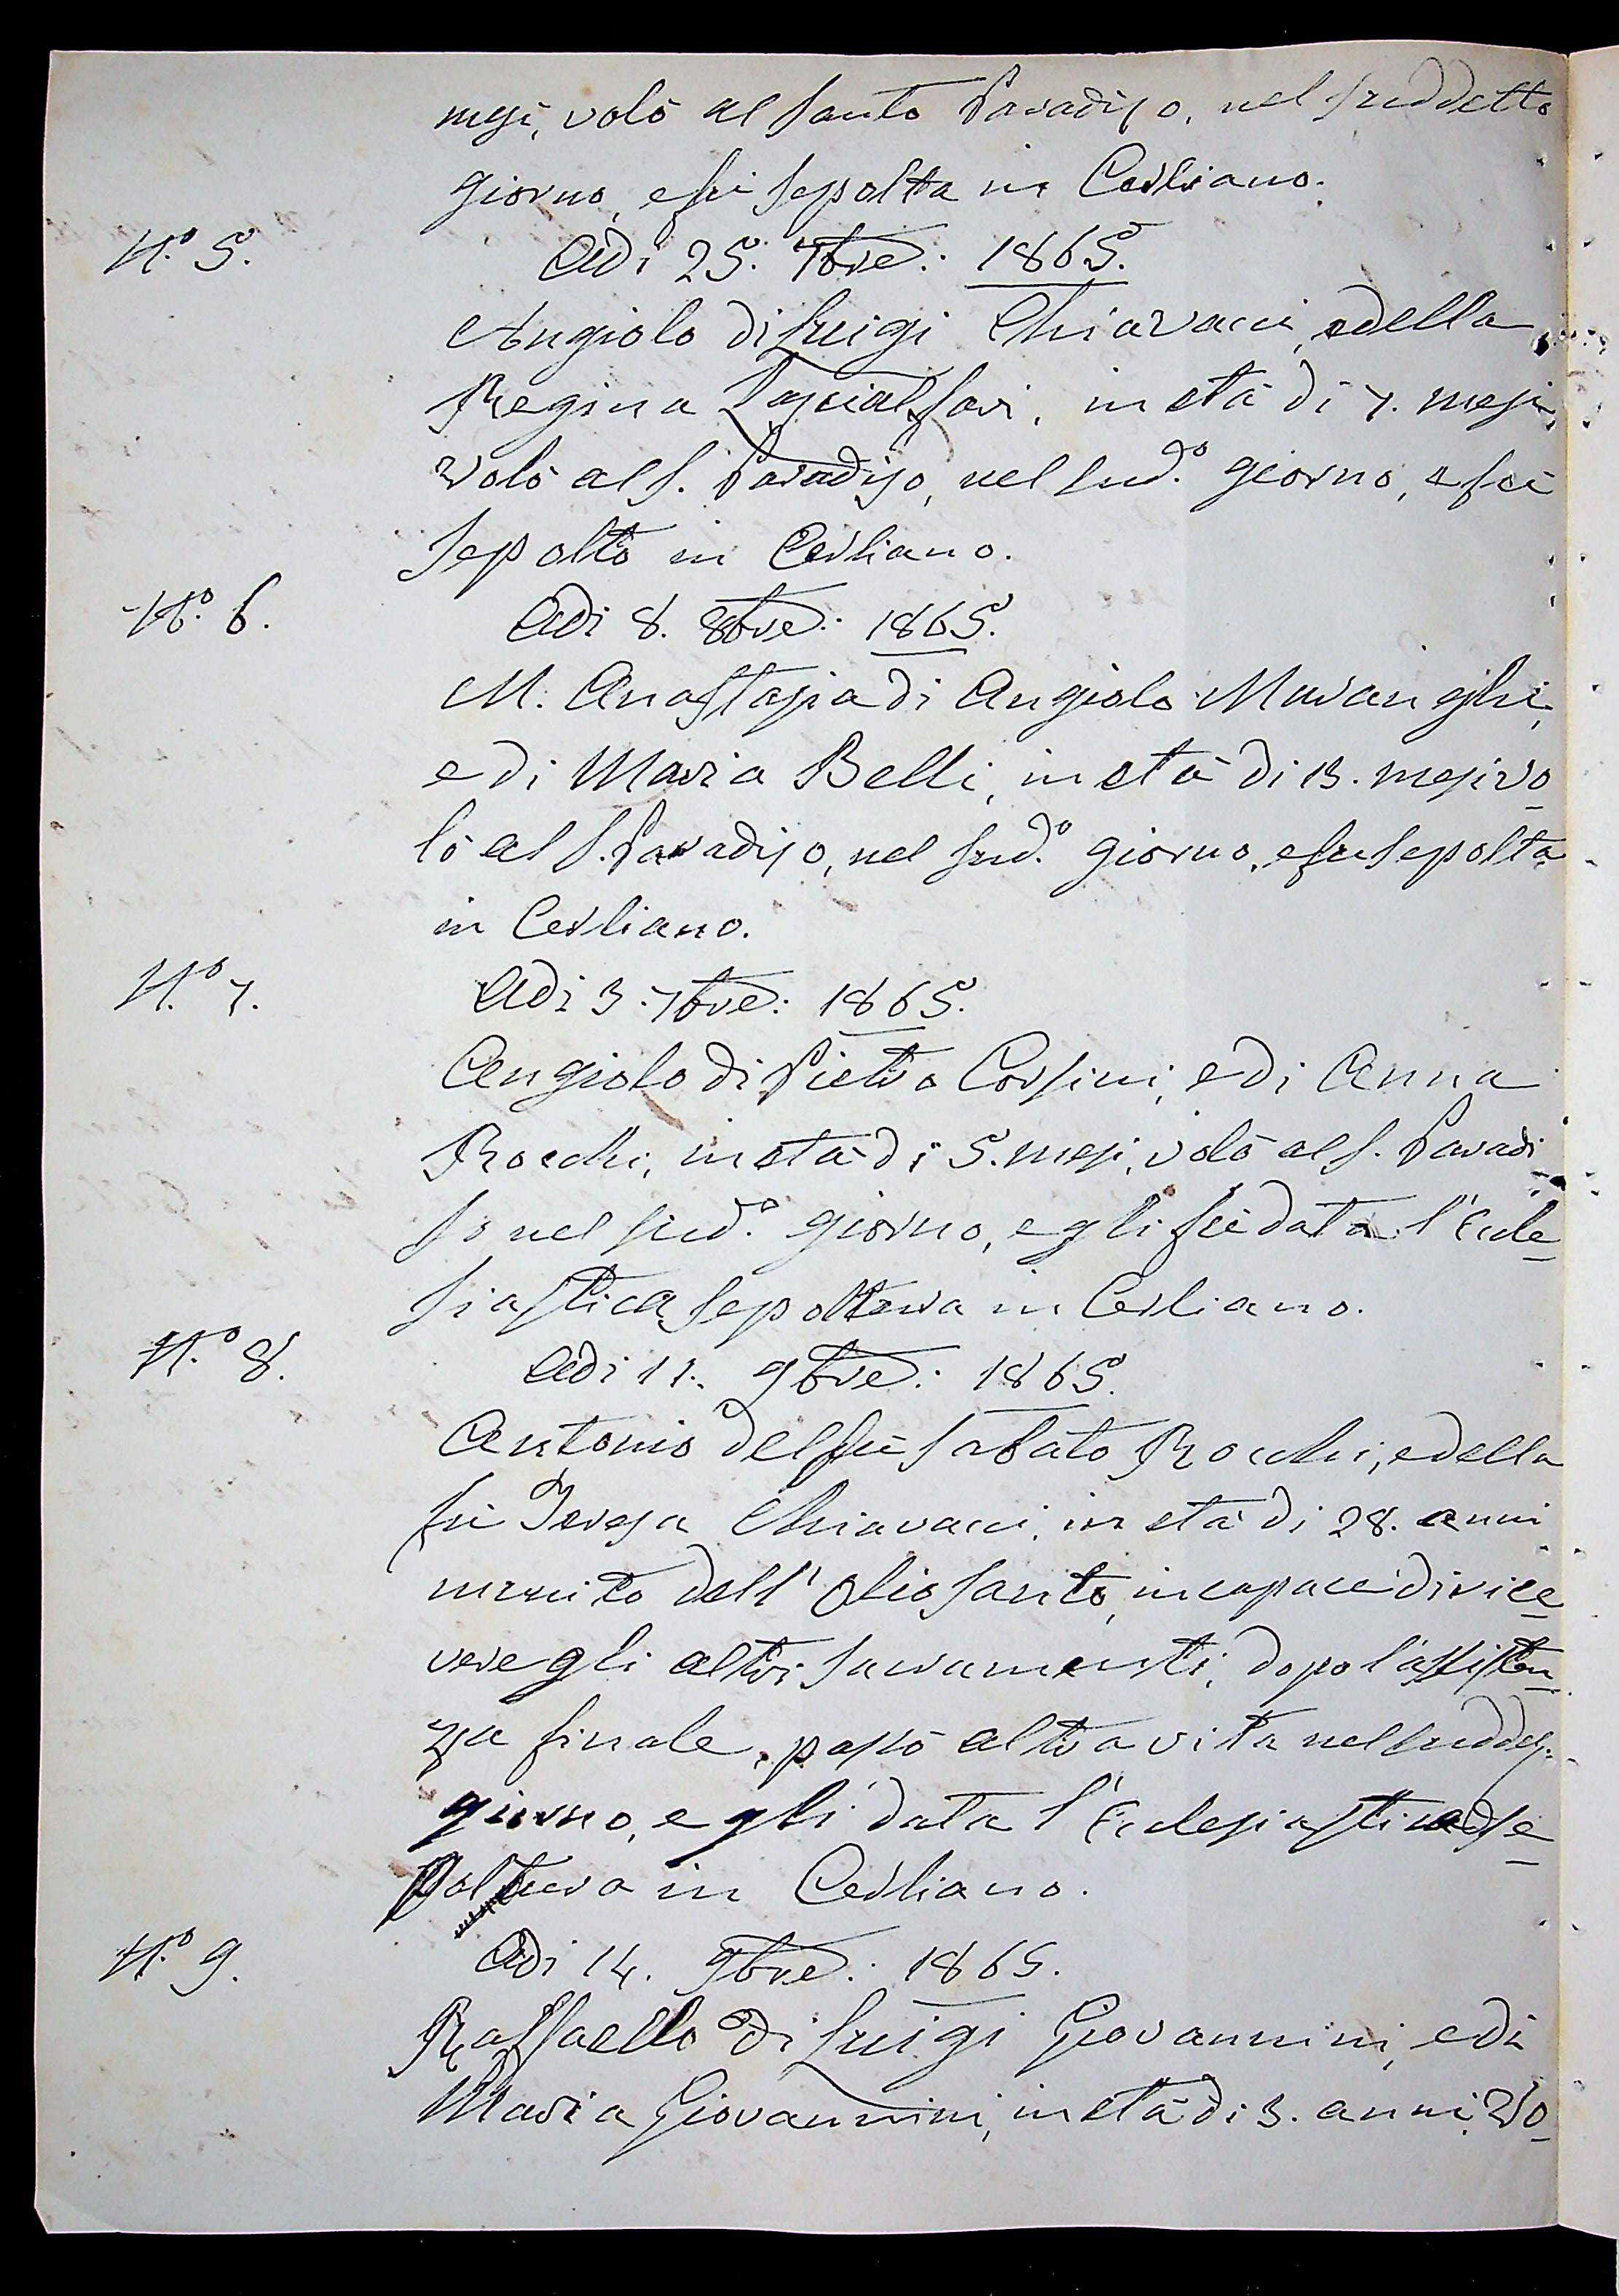 mesi, volò al Santo Paradiso, nel suddetto
giorno, e fù sepolta in Cerliano.
N.º 5.
Adi 25. 7bre: 1865.
Angiolo di Luigi Chiavacci, e della
Regina Lascialfari, in età di 7. mesi,
volò al S. Paradiso, nel sud.º giorno, e fù
sepolto in Cerliano.
N.º 6.
Adi 8. 8bre: 1865.
M. Anastasia di Angiolo Maranghi,
e di Maria Belli, in età di 13. mesi vo-
lò al S. Paradiso, nel sud.º giorno, e fu sepolta
in Cerliano.
N.º 7.
Adi 3. 7bre: 1865.
Angiolo di Pietro Corsini, e di Anna
Rocchi, in età di 5. mesi, volò al S. Paradi-
so nel sud.º giorno, e gli fù data l'Eccle-
siastica sepoltura in Cerliano.
N.º 8.
Adi 11. 9bre: 1865.
Antonio del fù Sabato Rocchi, e della
fù Teresa Chiavacci, in età di 28. anni
munito dell'Olio Santo, incapace di rice-
vere gli altri Sacramenti, dopo l'assisten-
za finale, passò altra vita nel suddº.
giorno, e gli data l'Ecclesiastica se-
poltura in Cerliano.
N.º 9.
Adi 14. 9bre: 1865.
Raffaello di Luigi Giovannini, e di
Maria Giovannini, in età di 3. anni, vo-